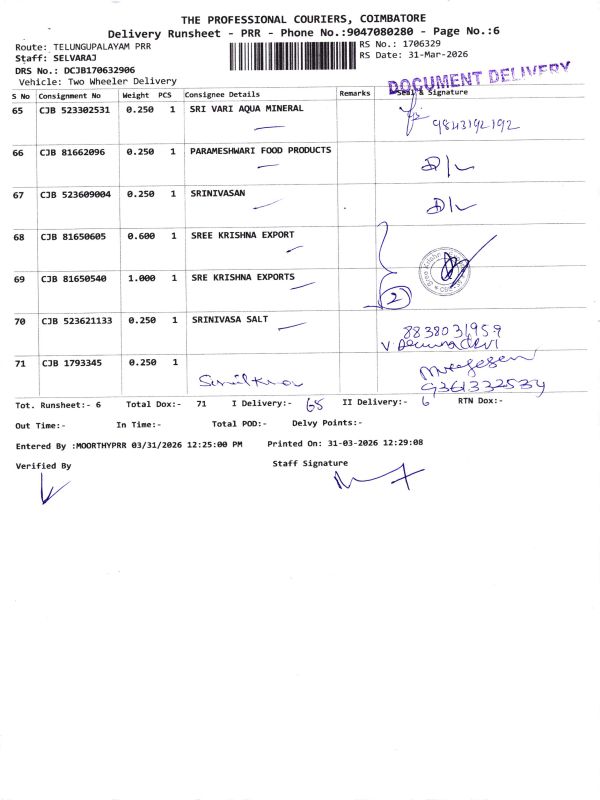 THE PROFESSIONAL COURIERS, COIMBATORE
Delivery Runsheet - PRR - Phone No.:9047080280 - Page No.:6
Route: TELUNGUPALAYAM PRR RS No.: 1706329
Staff: SELVARAJ RS Date: 31-Mar-2026
DRS No.: DCJB170632906
Vehicle: Two Wheeler Delivery
DOCUMENT DELIVERY
S No Consignment No Weight PCS Consignee Details Remarks Seal & Signature
65 CJB 523302531 0.250 1 SRI VARI AQUA MINERAL
9843192192
66 CJB 81662096 0.250 1 PARAMESHWARI FOOD PRODUCTS
67 CJB 523609004 0.250 1 SRINIVASAN
68 CJB 81650605 0.600 1 SREE KRISHNA EXPORT
69 CJB 81650540 1.000 1 SRE KRISHNA EXPORTS
2
70 CJB 523621133 0.250 1 SRINIVASA SALT
8838031959
71 CJB 1793345 0.250 1
9361332534
Tot. Runsheet:- 6 Total Dox:- 71 I Delivery:- 65 II Delivery:- 6 RTN Dox:-
Out Time:- In Time:- Total POD:- Delvy Points:-
Entered By :MOORTHYPRR 03/31/2026 12:25:00 PM Printed On: 31-03-2026 12:29:08
Verified By Staff Signature